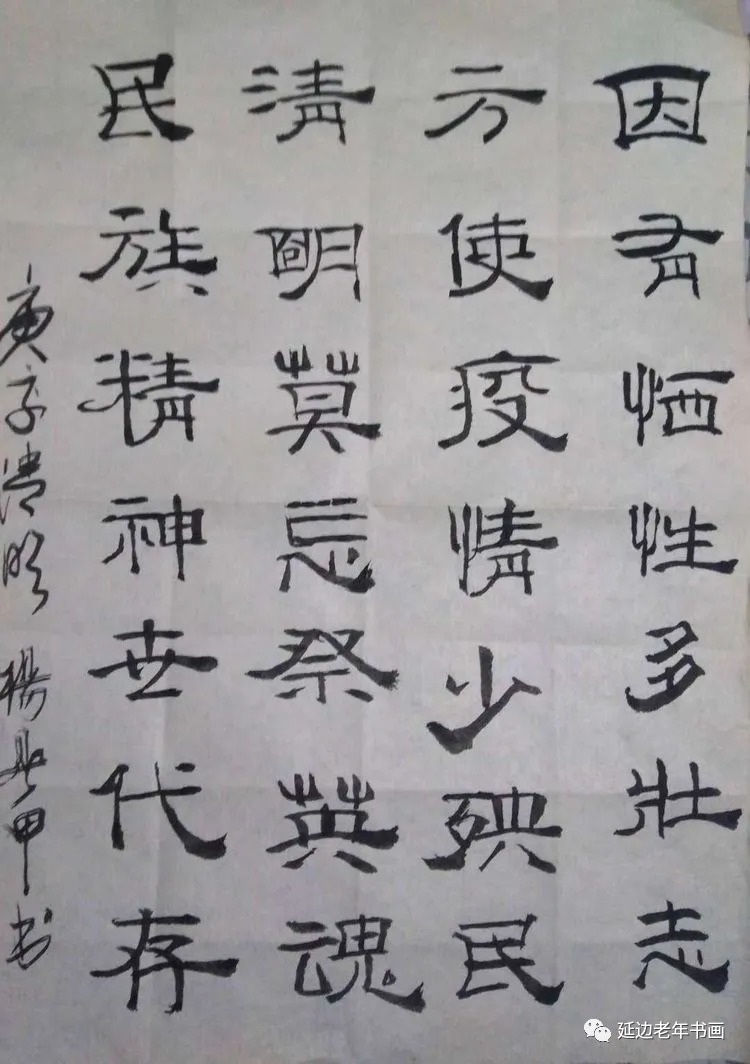 因有恓性多壯志
方使疫情少殃民
清明莫忘祭英魂
民族精神世代存
庚子清明 楊 甲书
延边老年书画